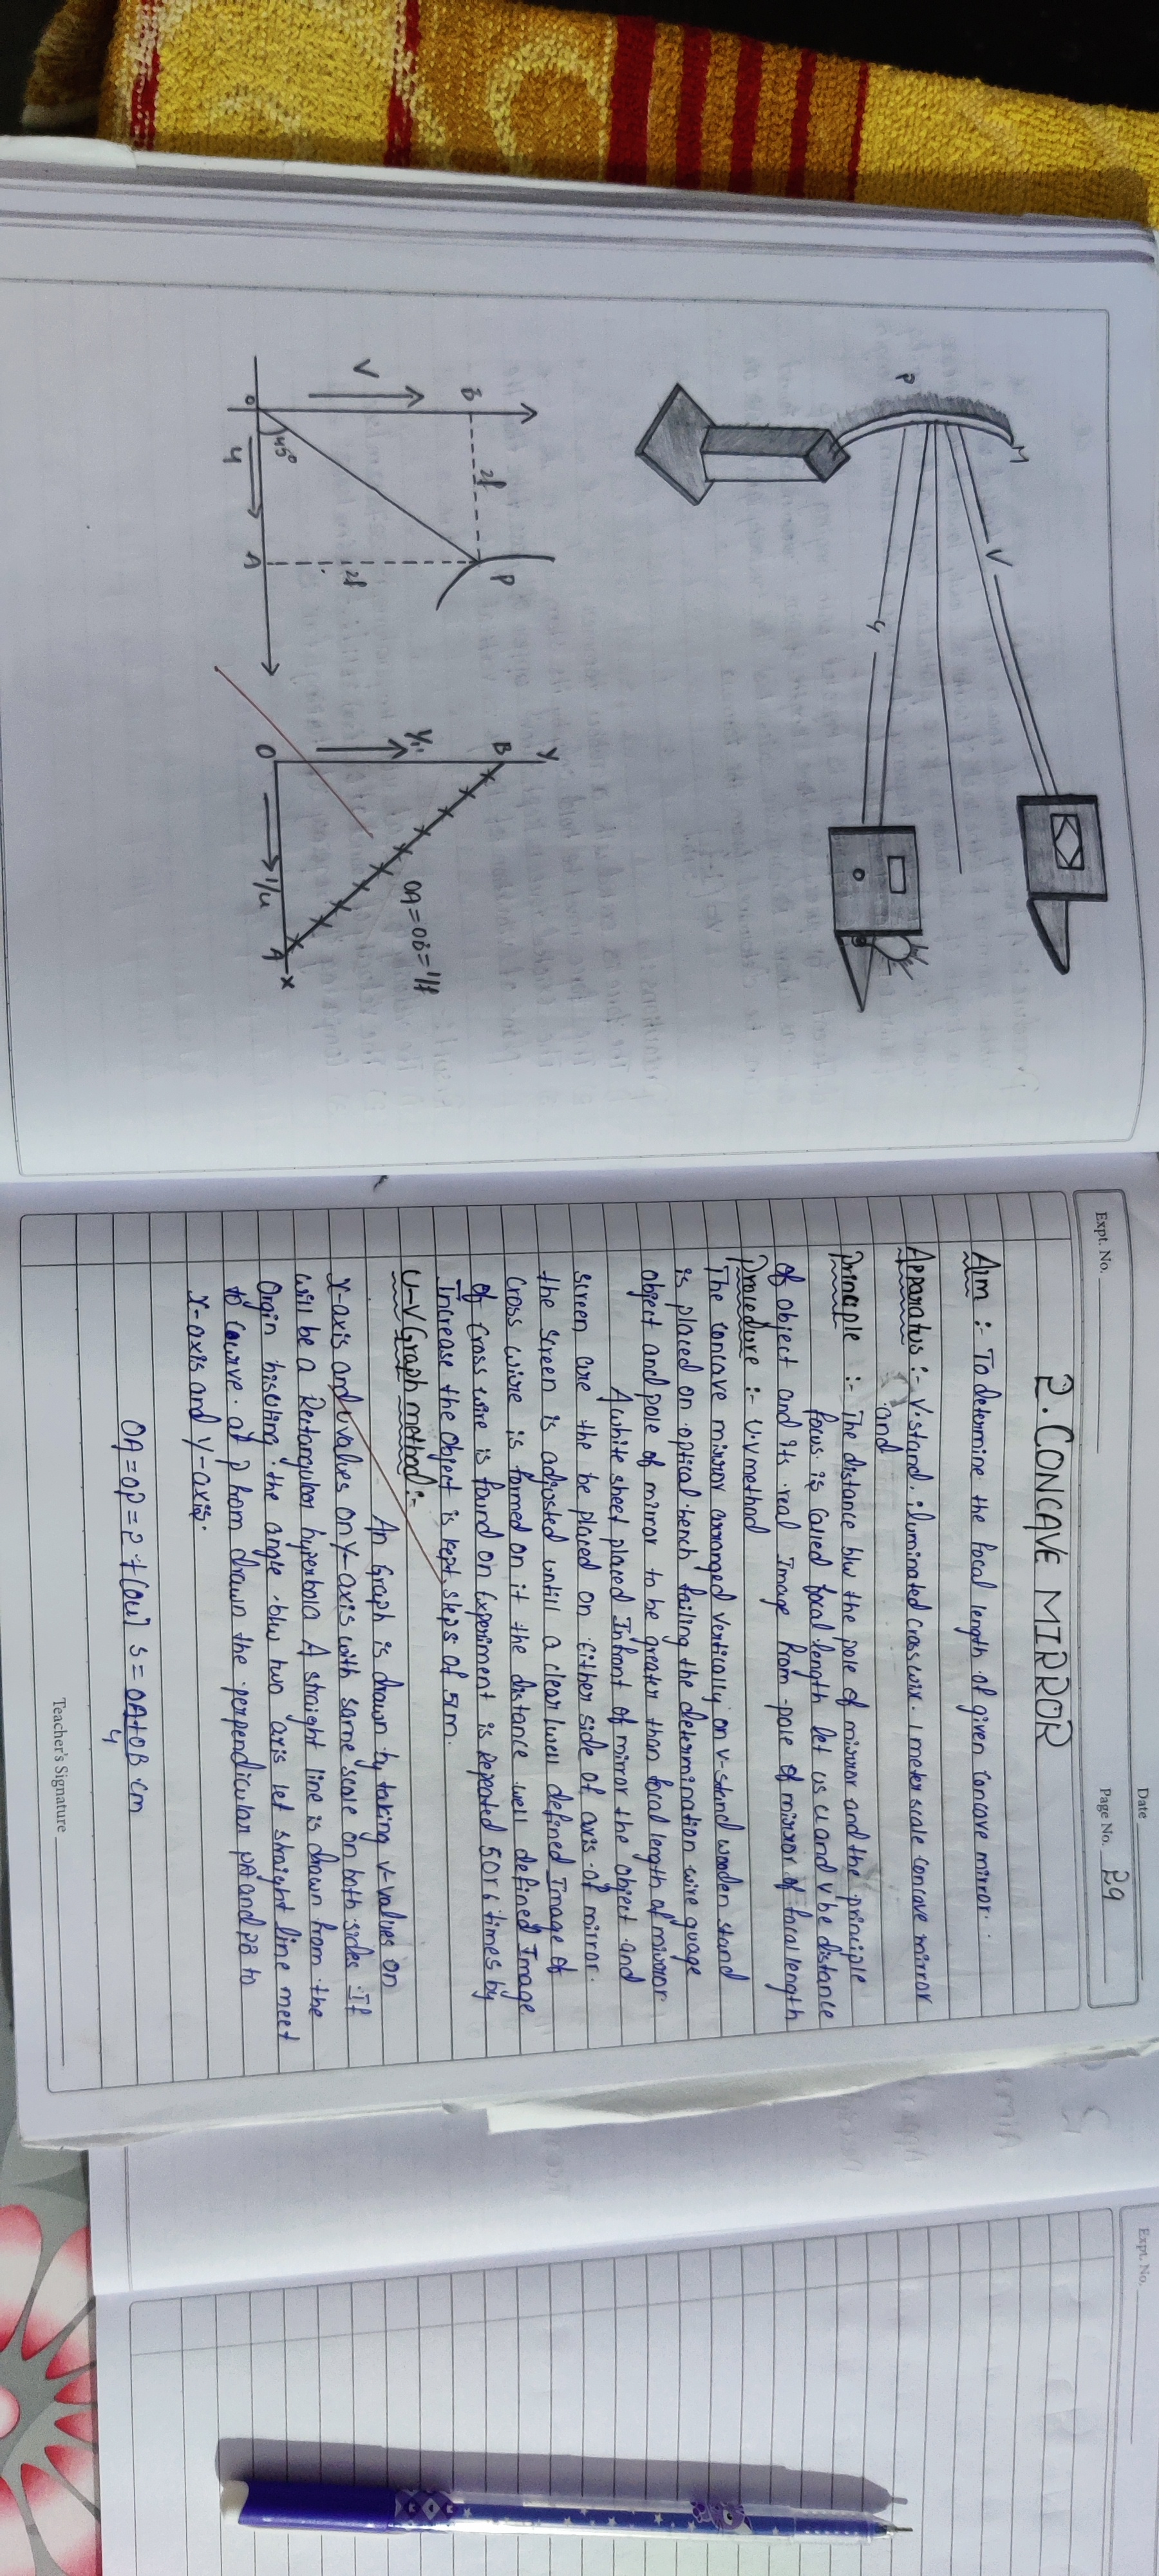 M
P
V
u
V
B
2f
P
2f
45°
O
u
A
Y
B
1/v
OA=OB=1/f
O
1/u
A
X
Date
Expt. No.
Page No. 29
2. CONCAVE MIRROR
Aim :- To determine the focal length of given concave mirror.
Apparatus :- V.stand, iluminated cross wire. 1 meter scale concave mirror
and
principle :- The distance blw the pole of mirror and the principle
focus is called focal length let us u and v be distance
of object and its real Image from pole of mirror of focal length
Procedure :- U.V method
The concave mirror arranged vertically on v-stand wooden stand
is placed on optical bench failing the determination wire guage
object and pole of mirror to be greater than focal length of mirror.
A white sheet placed Infront of mirror the object and
screen are the be placed on either side of axis of mirror.
the screen is adjosted untill a clear well defined Image of
cross wire is formed on it the distance well defined Image
of cross wire is found on Experiment is Repeated 5 or 6 times by
Increase the object is kept, steps of 5cm.
U-V Graph method :-
An Graph is drawn by taking v-values on
x-axis and u values on y-axis with same scale on both sides. It
will be a Rectangular hyperbola A straight line is drawn from the
Orgin bisecting the angle blw two axis let straight line meet
to Courve at p from drawn the perpendicular PA and PB to
x-axis and y-axis.
OA = OP = 2 f = OA+OB cm
4
Teacher's Signature
Expt. No.